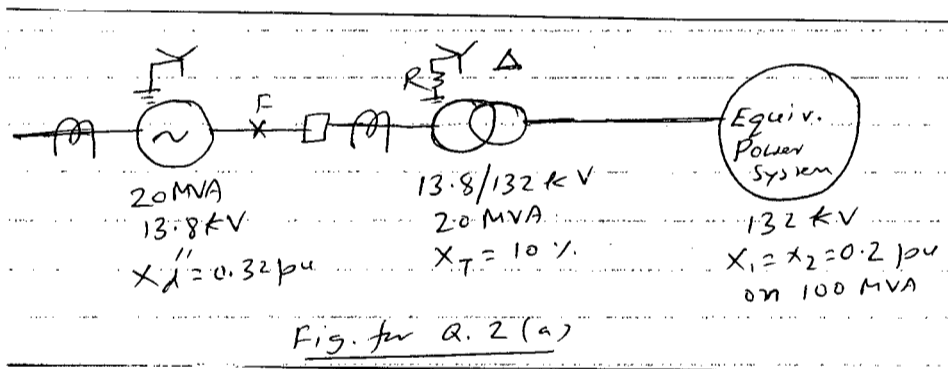 R
Δ
F
~
Equiv.
Power
System
20 MVA
13.8 kV
Xd'' = 0.32 pu
13.8/132 kV
20 MVA
X_T = 10 %.
132 kV
X₁ = X₂ = 0.2 pu
on 100 MVA
Fig. for Q. 2 (a)